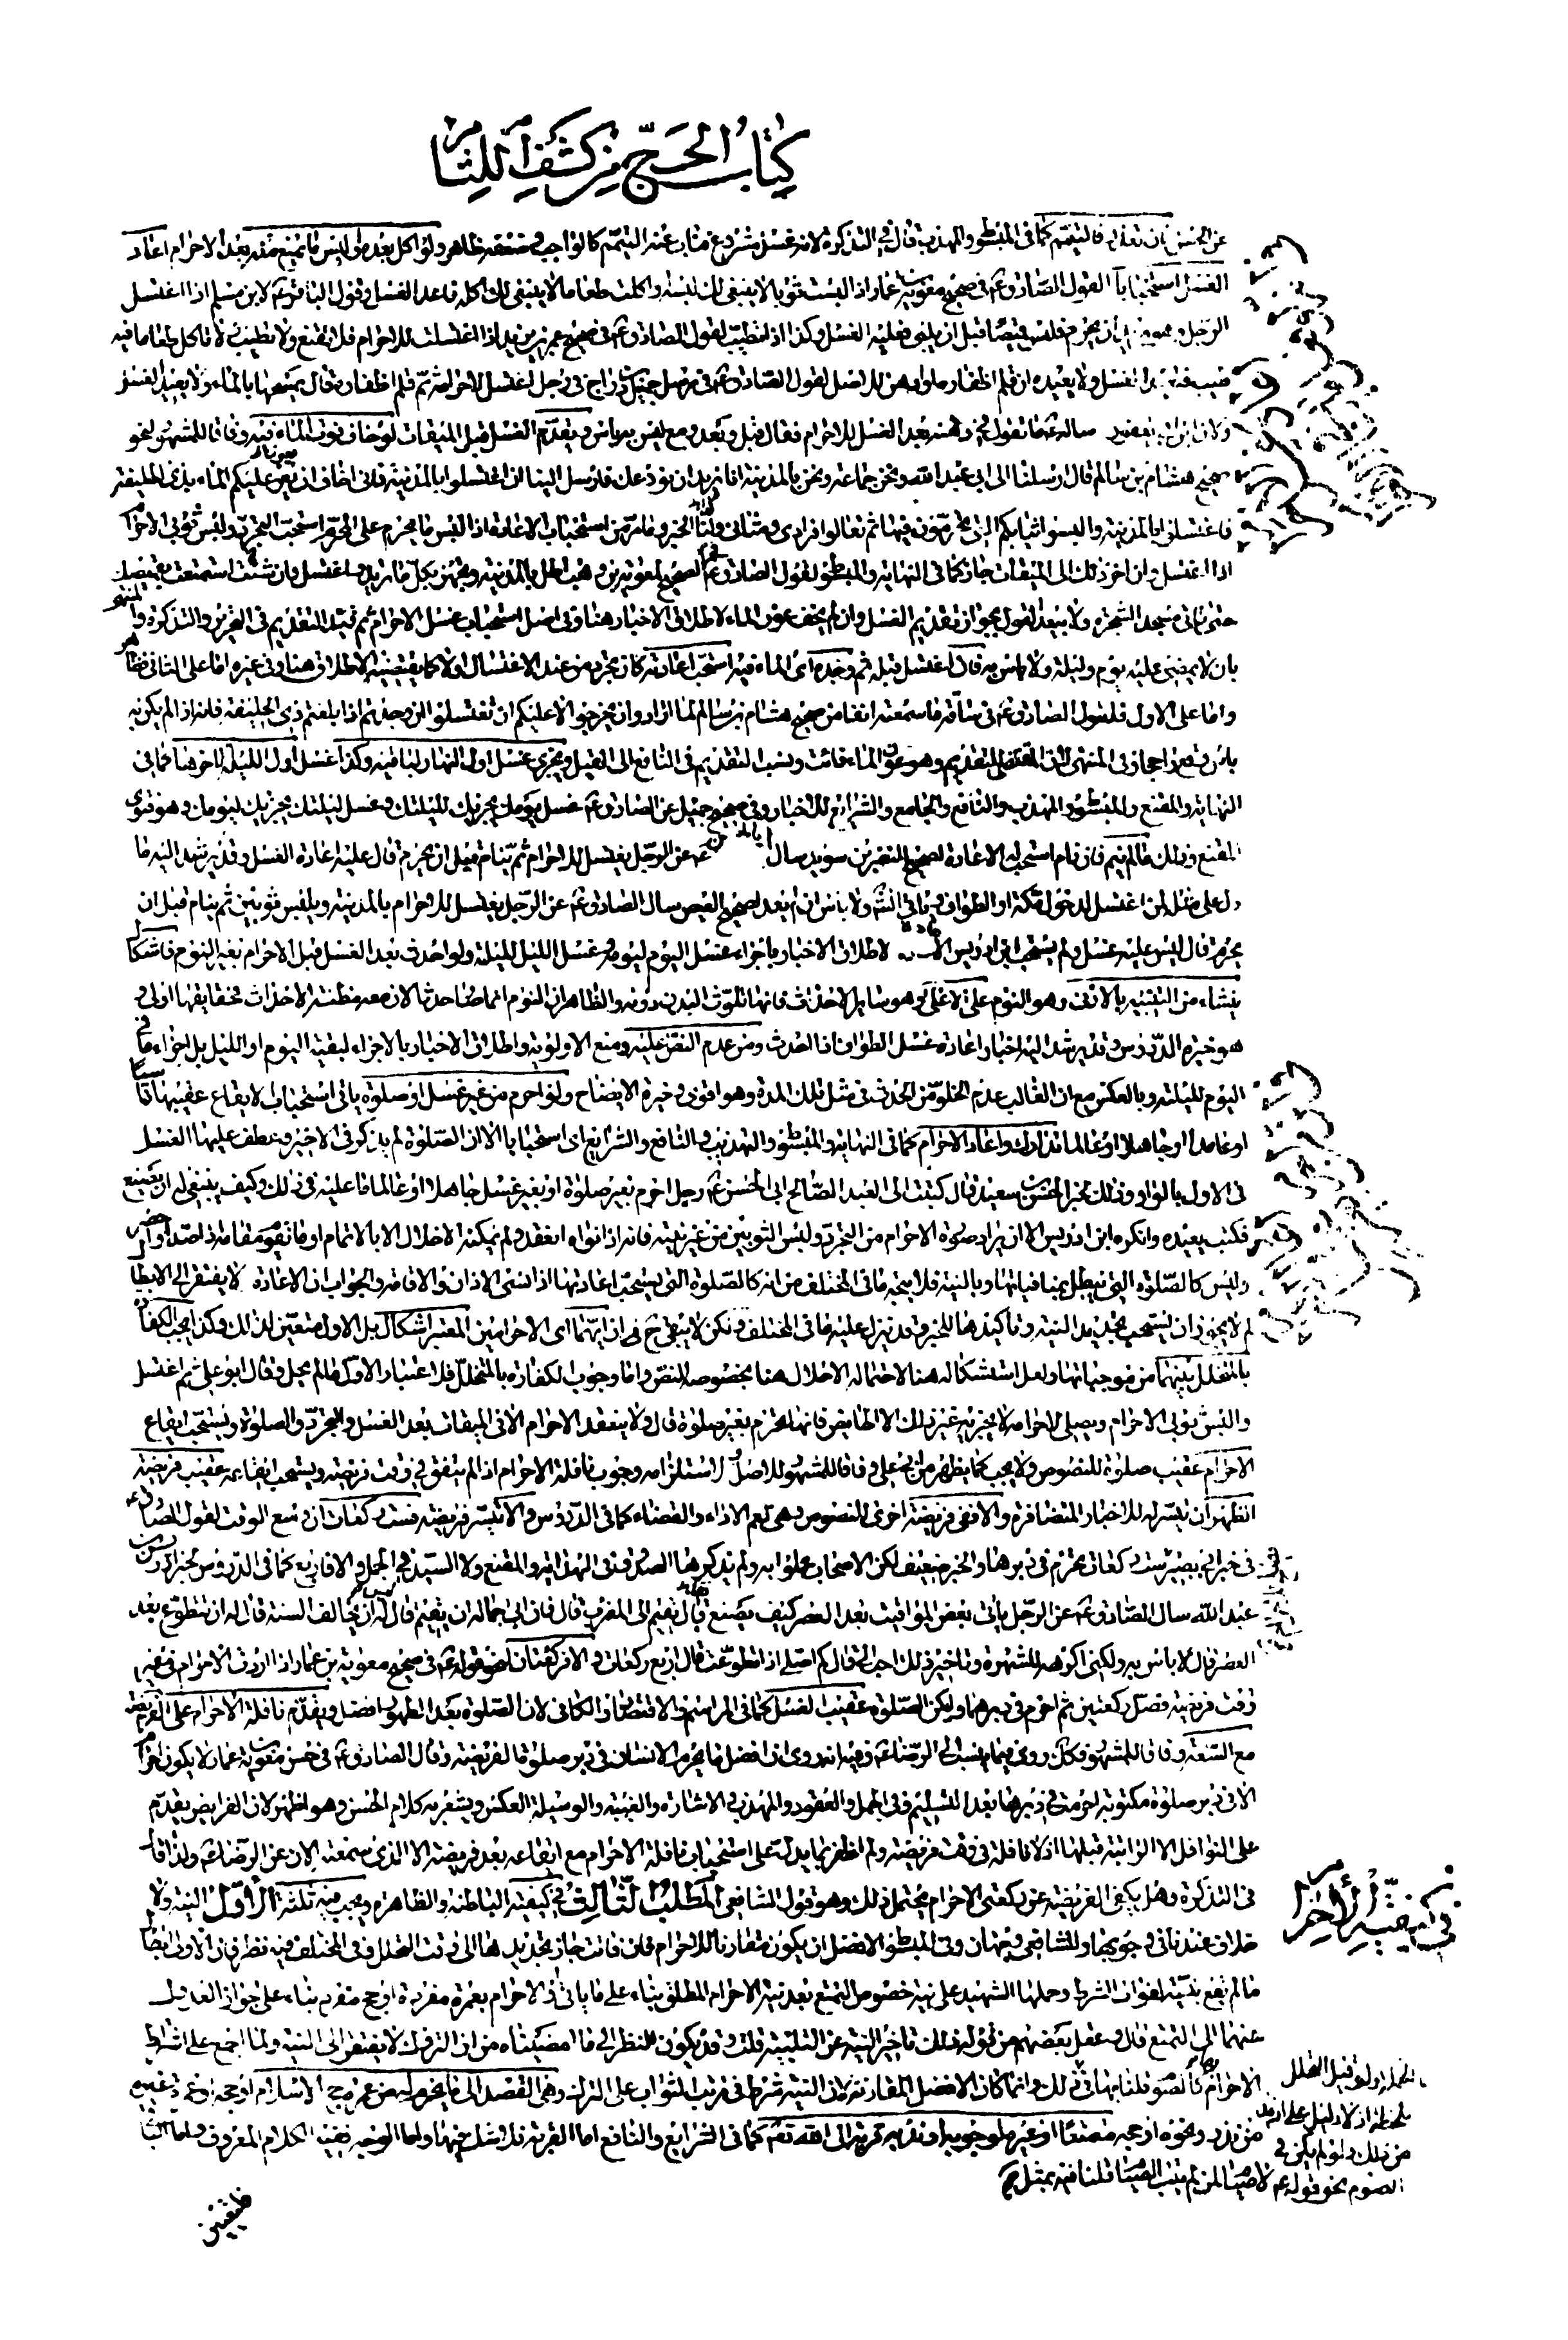 كتاب الحج من كشف اللثام
فالتيمم كما في المبسوط والمهذب قال في التذكرة لانه غسل مشروع فناب عنه التيمم كالواجب وضعفه ظاهر ولو اكل بعده او لبس ما يمنع منه بعد الاحرام اعاد
الغسل استحبابا لقول الصادق ع في صحيح معوية بن عمار اذا لبست ثوبا لا ينبغي لك لبسه او اكلت طعاما لا ينبغي لك اكله فاعد الغسل وقول الباقر ع لابن مسلم اذا اغتسل
الرجل وهو يريد ان يحرم فلبس قميصا قبل ان يلبي فعليه الغسل وكذا اذا تطيب لقول الصادق ع في صحيح عمر بن يزيد اذا اغتسلت للاحرام فلا تقنع ولا تطيب ولا تأكل طعاما فيه
طيب فتعيد الغسل ولا يعيده ان قلم اظفاره او ادهن للاصل لقول الصادق ع في مرسل جميل بن دراج في رجل اغتسل للاحرام ثم قلم اظفاره قال يمسحها بالماء ولا يعيد الغسل
سأله ع ما تقول في دهنة بعد الغسل للاحرام فقال قبل وبعد ومع ليس به بأس ويقدم الغسل قبل الميقات لو خاف عوز الماء فيه وفاقا للمشهور لنحو
صحيح هشام بن سالم قال ارسلنا الى ابي عبد الله ونحن جماعة ونحن بالمدينة انا نريد ان نودعك فارسل الينا ان اغتسلوا بالمدينة فاني اخاف ان يعز عليكم الماء بذي الحليفة
فاغتسلوا بالمدينة والبسوا ثيابكم التي تحرمون فيها ثم تعالوا فرادى ومثاني ولهذا الخبر وما مر من استحباب الاعادة اذا لبس ما يحرم على المحرم استحب التجرد ولبس ثوبي الاحرام
اذا اغتسل وان اخر ذلك الى الميقات جاز كما في النهاية والمبسوط لقول الصادق ع في الصحيح لمعوية بن وهب اطل بالمدينة وتجهز بكل ما تريد واغتسل وان شئت استمتعت بقميصك
حتى تأتي مسجد الشجرة ولا يبعد القول بجواز تقديم الغسل وان لم يخف عوز الماء لاطلاق الاخبار هنا وفي اصل استحباب غسل الاحرام ثم قيد التقديم في التحرير والتذكرة والمنتهى
بان لا يمضي عليه يوم وليلة ولا بأس به قال اغتسل قبله ثم وجده اي الماء فيه استحب اعادته كان تجرد من عند الاغتسال اولا كما يقتضيه الاطلاق هنا وفي غيره اما على الثاني فظاهر
واما على الاول فلقول الصادق ع في ساقة ما سمعته انفا من صحيح هشام بن سالم لما ارادوا ان يخرجوا لا عليكم ان تغتسلوا ان وجدتم اذا بلغتم ذي الحليفة فانه اذا لم يكن به
بأس وقع راجحا وفي المنتهى لان المقتضي للتقديم وهو عوز الماء فائت ونسب التقديم في النافع الى القيل ويجزي غسل اول النهار لباقيه وكذا غسل اول الليلة لاخرها كما في
النهاية والمقنع والمبسوط والمهذب والنافع والجامع والشرايع للاخبار وفي صحيح جميل عن الصادق ع غسل يومك يجزيك لليلتك وغسل ليلتك يجزيك ليومك وهو فتوى
المقنع وذلك ما لم ينم فان نام استحب له الاعادة لصحيح النضر بن سويد سأل ابا الحسن ع عن الرجل يغتسل للاحرام ثم ينام قبل ان يحرم قال عليه اعادة الغسل وقد يرشد اليه ما
دل على مثله لمن اغتسل لدخول مكة او الطواف ولا بأس ان لم يعد لصحيح العيص سأل الصادق ع عن الرجل يغتسل للاحرام بالمدينة ويلبس ثوبين ثم ينام قبل ان
يحرم قال ليس عليه غسل ولم يستحب ابن ادريس الاعادة لاطلاق الاخبار باجزاء غسل اليوم ليومه وغسل الليل لليلته ولو احدث بعد الغسل قبل الاحرام بغير النوم فاشكال
ينشاء من التنبيه بالادنى وهو النوم على الاعلى وهو سائر الاحداث فانها تلوث البدن دونه والظاهر ان النوم انما صار حدثا لان معه مظنة الاحداث فحقايقها اولى و
هو خيرة الدروس وقد يرشد اليه اخبار اعادة غسل الطواف اذا احدث ومن عدم النص عليه ومنع الاولوية واطلاق الاخبار بالاجزاء لبقية اليوم او الليل بل اجزاء ما في
اليوم لليلته وبالعكس مع ان الغالب عدم الخلو من الحدث في مثل تلك المدة وهو اقوى وخيرة الايضاح ولو احرم من غير غسل او صلوة يأتي استحباب لايقاع عقيبها ناسيا
او عامدا او جاهلا او عالما تدارك واعاد الاحرام كما في النهاية والمبسوط والتهذيب والنافع والشرايع اي استحبابا الا ان الصلوة لم يذكر في الاخير وعطف عليها الغسل
في الاول بالواو وذلك لخبر الحسين بن سعيد قال كتبت الى العبد الصالح ابي الحسن ع رجل احرم بغير صلوة او بغير غسل جاهلا او عالما ما عليه في ذلك وكيف ينبغي له ان يصنع
فكتب يعيده وانكره ابن ادريس الا ان يراد صورة الاحرام من التجرد ولبس الثوبين من غير نية فانه اذا نواه انعقد ولم يمكنه الاحلال الا بالاتمام او ما يقوم مقامه اذا صد او احصر
وليس كالصلوة التي تبطل بمنافياتها وبالنية فلا يتجه ما في المختلف من انه كالصلوة التي يستحب اعادتها اذا نسى الاذان والاقامة والجواب ان الاعادة لا يفتقر الى الابطال
لم لا يجوز ان يستحب تجديد النية وتأكيدها للخبر وقد ينزل عليه ما في المختلف ولكن لا يبقى ح في ان ايهما اي الاحرامين المعتبر اشكال بل الاول متعين لذلك وكذا يجب الكفارة
بالمتخلل بينهما من موجباتها ولعل استشكاله هنا لاحتماله الاحلال هنا بخصوصه للنص واما وجوب الكفارة بالمتخلل فلاعتبار الاول ما لم يحل وقال ابو علي ثم اغتسل
والبس ثوبي الاحرام ويصلي لاحرامه لا يجزيه غير ذلك الا الحايض فانها تحرم بغير صلوة قال ولا ينعقد الاحرام الا في الميقات بعد الغسل والتجرد والصلوة ويستحب ايقاع
الاحرام عقيب صلوة للنصوص ولا يجب كما يظهر من ابي علي وفاقا للمشهور للاصل واستلزامه وجوب نافلة الاحرام اذا لم يتفق في وقت فريضة ويستحب ايقاعه عقيب فريضة
الظهر ان تيسر له للاخبار المتضافرة والا ففي فريضة اخرى للنصوص وهي تعم الاداء والقضاء كما في الدروس والا تيسر فريضة فست ركعات ان وسع الوقت لقول الصادق ع
في خبر ابي بصير ست ركعات تحرم في دبرها والخبر ضعيف لكن الاصحاب عملوا به ولم يذكرها الصدوق في الهداية والمقنع ولا السيد في الجمل والا فاربع كما في الدروس لخبر ادريس بن
عبد الله سأل الصادق ع عن الرجل يأتي بعض المواقيت بعد العصر كيف يصنع قال يقيم الى المغرب قال فان ابى جماله ان يقيم قال ليس له ان يخالف السنة قال له ان يتطوع بعد
العصر قال لا بأس به ولكني اكرهه للشهرة وتأخير ذلك احب الي قال كم اصلي اذا تطوعت قال اربع ركعات والا فركعتان لقوله ع في صحيح معوية بن عمار اذا اردت الاحرام في غير
وقت فريضة فصل ركعتين ثم احرم في دبرهما وليكن الصلوة عقيب الغسل كما في المراسم والاقتصاد والكافي لان الصلوة بعد الطهور افضل ويقدم نافلة الاحرام على الفريضة
مع السعة وفاقا للمشهور فكل روي فيما ينسب الى الرضا ع وفيه انه روى ان افضل ما يحرم الانسان في دبر صلوة الفريضة وقال الصادق ع في حسن معوية بن عمار لا يكون احرام
الا في دبر صلوة مكتوبة احرمت في دبرها بعد التسليم وفي الجمل والعقود والمهذب والاشارة والغنية والوسيلة العكس ويشعر به كلام الحسن وهو اظهر لان الفرايض يقدم
على النوافل الا الراتبة قبلها اذ لا نافلة في وقت فريضة ولم اظفر بما يدل على استحباب نافلة الاحرام مع ايقاعه بعد فريضة الا الذي سمعته الان عن الرضا ع ولذا قال
في التذكرة وهل يكفي الفريضة عن ركعتي الاحرام يحتمل ذلك وهو قول الشافعي المطلب الثالث في كيفيته الباطنة والظاهرة ويجب فيه ثلثة الاول النية ولا
خلاف عندنا في وجوبها وللشافعي وجهان وفي المبسوط الافضل ان يكون مقارنا للاحرام فان فاتت جاز تجديدها الى وقت التحلل وفي المختلف فيه نظر فان الاولى ايضا
ما لم يقع بنية لفوات الشرط وحملها الشهيد على نية خصوص التمتع بعد نية الاحرام المطلق بناء على ما يأتي او الاحرام بعمرة مفردة او حج مفرد بناء على جواز العدول
عنهما الى التمتع قال وعقل بعضهم من قوله ذلك تأخير النية عن التلبية قلت وقد يكون للنظر الى ما امضيناه من ان التروك لا يفتقر الى النية ولما اجمع على اشتراط
الاحرام بها كالصوم قلنا بها في ذلك وانما كان الافضل المقارنة لان النية شرط في ترتب الثواب على الترك وهي القصد الى ما يحرم له من عمرة وحج الاسلام او حجه او عمرة
من نذر ونحوه او حجه متمتعا او غيره لوجوبه او ندبه قربة الى الله تع كما في الشرايع والنافع اما القربة فلا شك فيها واما الوجه ففيه الكلام المعروف واما الباقي
في كيفية الاحرام
في الجملة ولو قبل التحلل
بلحظة اذ لا دليل على ازيد
من ذلك ولو لم يكن في
الصوم نحو قوله ع لا صيام لمن لم يبيت الصيام قلنا فيه بمثل ح